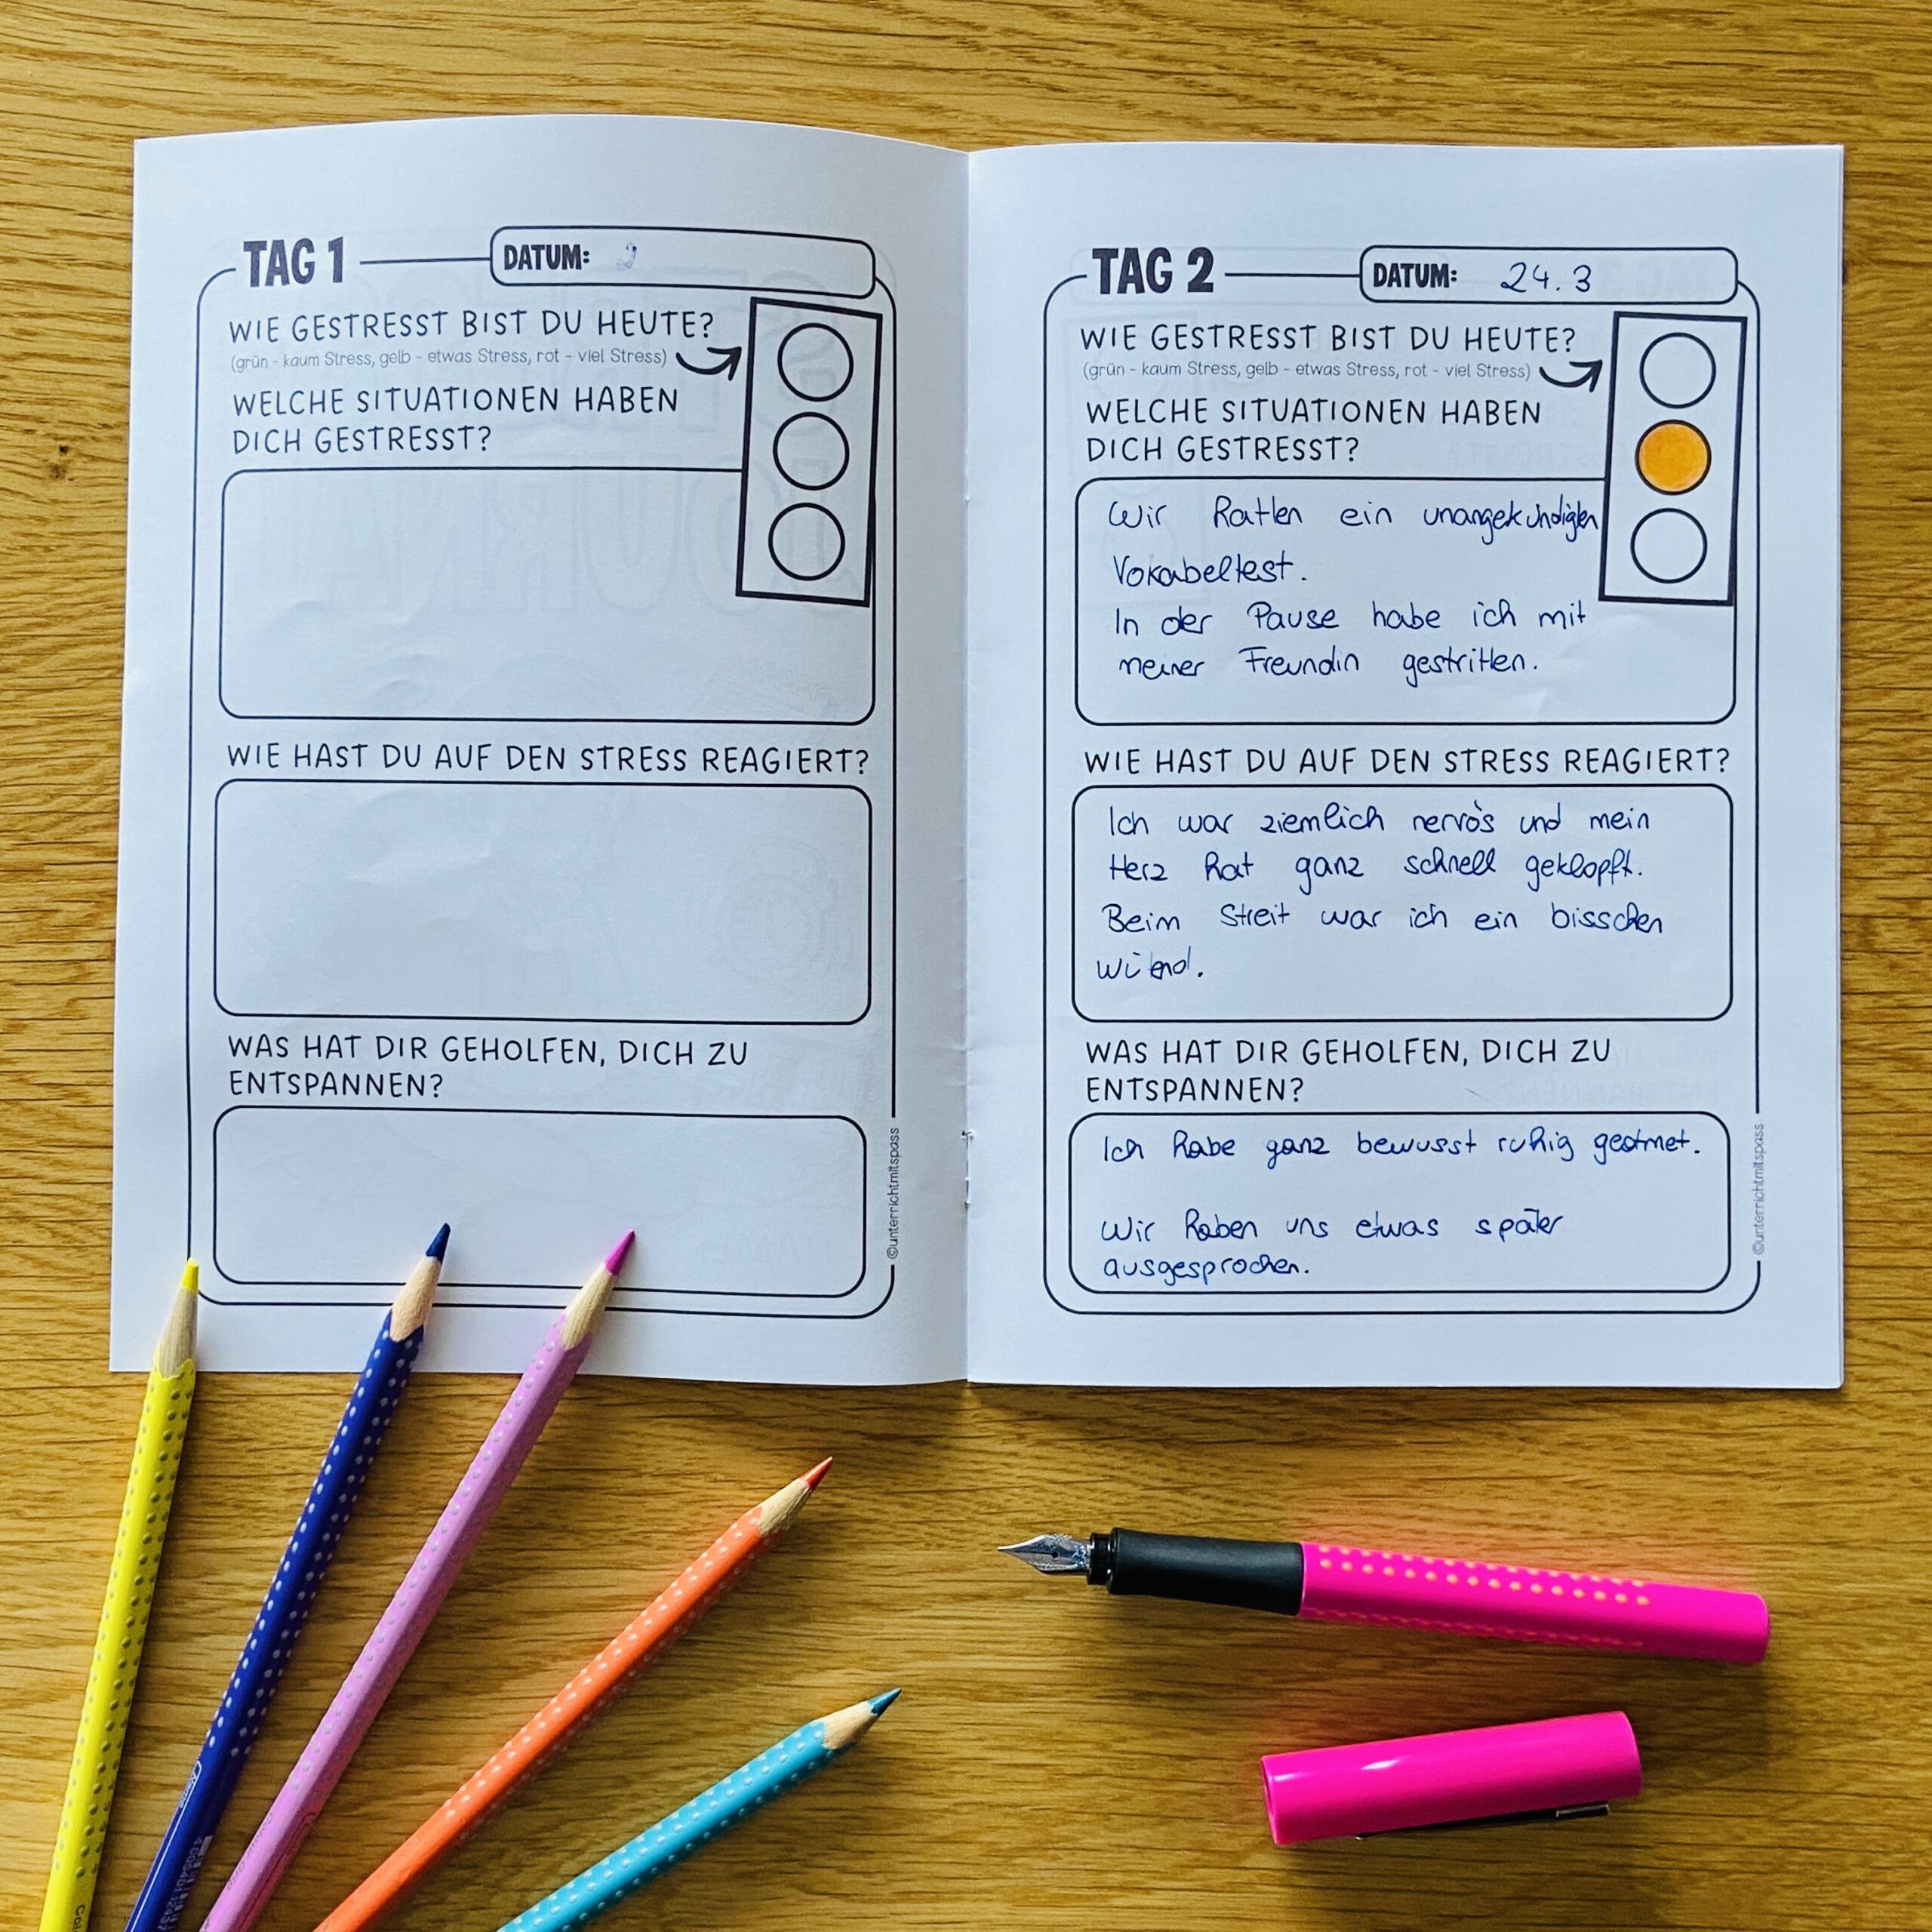 TAG 1
DATUM:
WIE GESTRESST BIST DU HEUTE?
(grün - kaum Stress, gelb - etwas Stress, rot - viel Stress)
WELCHE SITUATIONEN HABEN
DICH GESTRESST?
WIE HAST DU AUF DEN STRESS REAGIERT?
WAS HAT DIR GEHOLFEN, DICH ZU
ENTSPANNEN?
©unterrichtmitspass
TAG 2
DATUM: 24.3
WIE GESTRESST BIST DU HEUTE?
(grün - kaum Stress, gelb - etwas Stress, rot - viel Stress)
WELCHE SITUATIONEN HABEN
DICH GESTRESST?
Wir hatten ein unangekündigten
Vokabeltest.
In der Pause habe ich mit
meiner Freundin gestritten.
WIE HAST DU AUF DEN STRESS REAGIERT?
Ich war ziemlich nervös und mein
Herz hat ganz schnell geklopft.
Beim Streit war ich ein bisschen
WAS HAT DIR GEHOLFEN, DICH ZU
ENTSPANNEN?
Ich habe ganz bewusst ruhig geatmet.
Wir haben uns etwas später
ausgesprochen.
©unterrichtmitspass